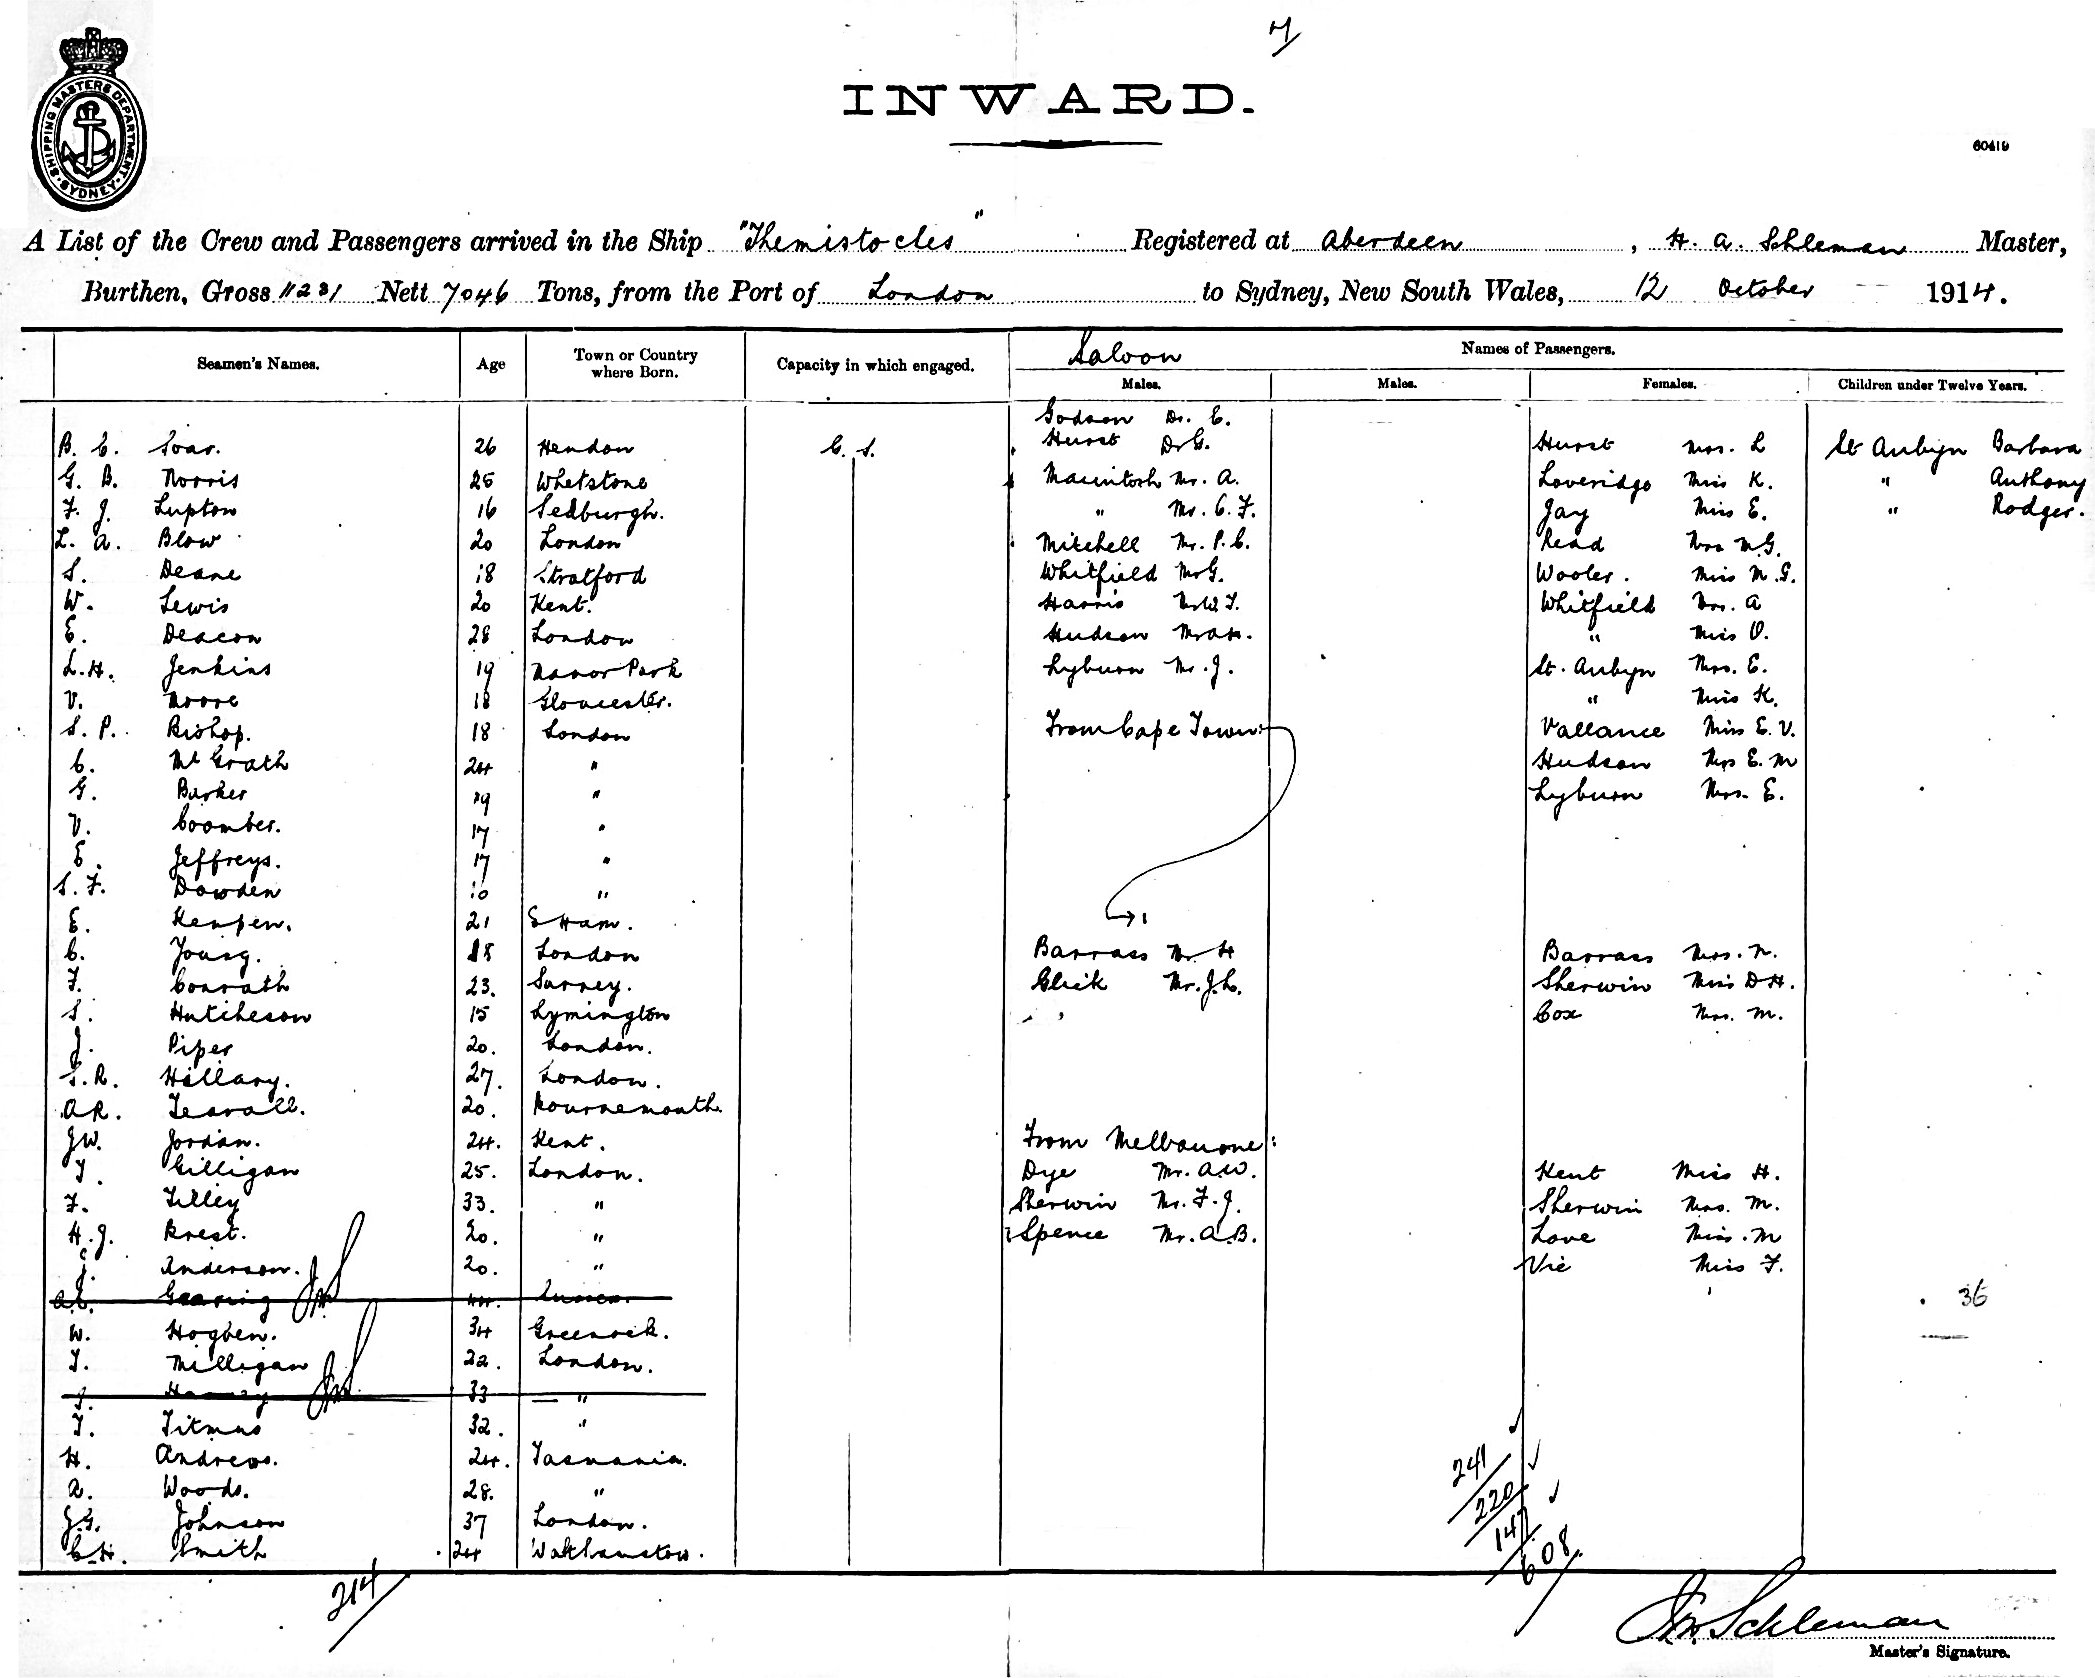 4
INWARD.
60419
SHIPPING MASTERS DEPARTMENT SYDNEY
A List of the Crew and Passengers arrived in the Ship "Themistocles" Registered at Aberdeen, H. A. Schleman Master,
Burthen, Gross 11231 Nett 7046 Tons, from the Port of London to Sydney, New South Wales, 12 October 1914.
Seamen's Names. Age Town or Country where Born. Capacity in which engaged. Saloon Names of Passengers.
Males. Males. Females. Children under Twelve Years.
Godson Dr. E.
B. C. Soar. 26 Hendon C. S. Hurst Dr G. Hurst Mrs. L St Aubyn Barbara
G. B. Norris 25 Whetstone Macintosh Mr. A. Loveridge Miss K. " Anthony
F. J. Lupton 16 Sedburgh. " Mr. C. F. Jay Miss E. " Rodger.
L. A. Blow 20 London Mitchell Mr. P. C. Read Mrs M G.
S. Deane 18 Stratford Whitfield Mr G. Wooler. Miss M. G.
W. Lewis 20 Kent. Harris Mr W. T. Whitfield Mrs. A
E. Deacon 28 London Hudson Mr A H. " Miss O.
L. H. Jenkins 19 Manor Park Lyburn Mr. J. St. Aubyn Mrs. E.
V. Moore 18 Gloucester. " Miss K.
S. P. Bishop. 18 London From Cape Town: Vallance Miss E. V.
C. McGrath 24 " Hudson Mrs E. M
G. Barker 19 " Lyburn Mrs. E.
V. Coomber. 17 "
E. Jeffreys. 17 "
S. F. Dowden "
E. Kempen. 21 E Ham.
C. Young. 18 London Barrass Mr H Barrass Mrs. N.
F. Conrath 23. Surrey. Glick Mr. J. L. Sherwin Miss D H.
S. Hutcheson 15 Lymington Cox Mrs. M.
J. Piper 20. London.
S. R. Hillary. 27. London.
A R. 20. Bournemouth.
J W. Jordan. 24. Kent. From Melbourne:
T. Gilligan 25. London. Dye Mr. A W. Kent Miss H.
F. Tilley 33. " Sherwin Mr. F. J. Sherwin Mrs. M.
H. J. Brest. 20. " Spence Mr. A. B. Love Miss. M
J. Anderson. 20. " Vie Miss F.
A. C. Gearing 44. Sussex. 36
W. Hogben. 34 Greenock.
T. Milligan 22. London.
S. 33 "
T. Titmus 32. "
H. Andrews. 24. Tasmania.
A. Woods. 28. "
J G. Johnson 37 London.
C. H. Smith 24 Walthamstow.
241
220
147
608
214
Schleman
Master's Signature.